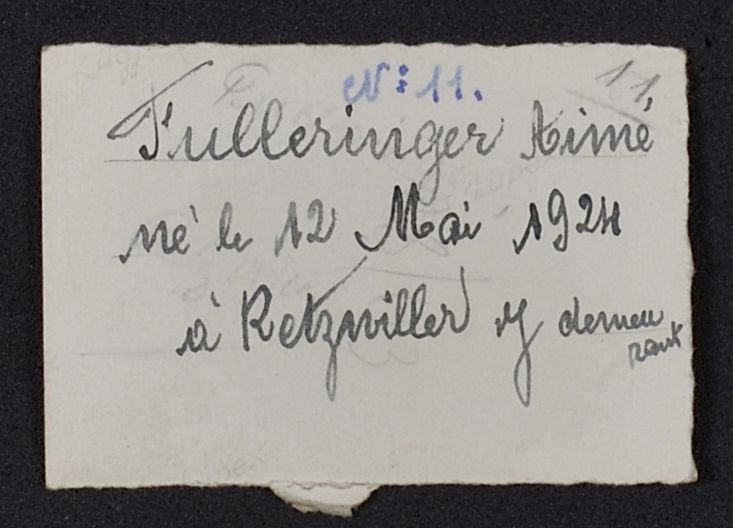 N: 11.
11
Fulleringer Aimé
né le 12 Mai 1924
à Retzwiller y demeu
rant